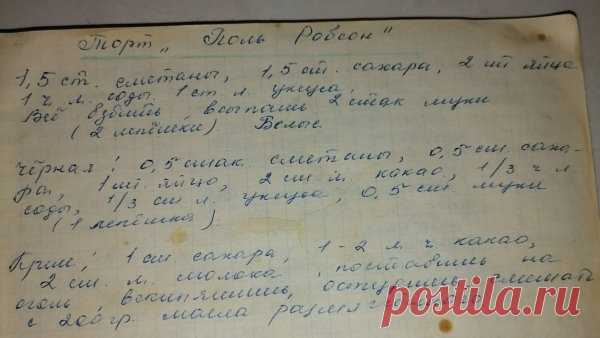 Торт „ Поль Робсон"
1,5 ст. сметаны, 1,5 ст. сахара, 2 шт яйца
1 ч. л. соды, 1 ст. л. уксуса,
Всё взбить всыпать 2 стак муки
(2 лепёшки) Белые.
Чёрная: 0,5 стак. сметаны, 0,5 ст. саха-
ра, 1 шт. яйцо, 2 ст. л. какао, 1/3 ч л
соды, 1/3 ст л. уксуса, 0,5 ст. муки
(1 лепёшка)
Крем: 1 ст сахара, 1-2 л. ч. какао,
2 ст. л. молока, поставить на
огонь, вскипятить, остудить, смешать
с 200 гр. масла размягчённого
postila.ru